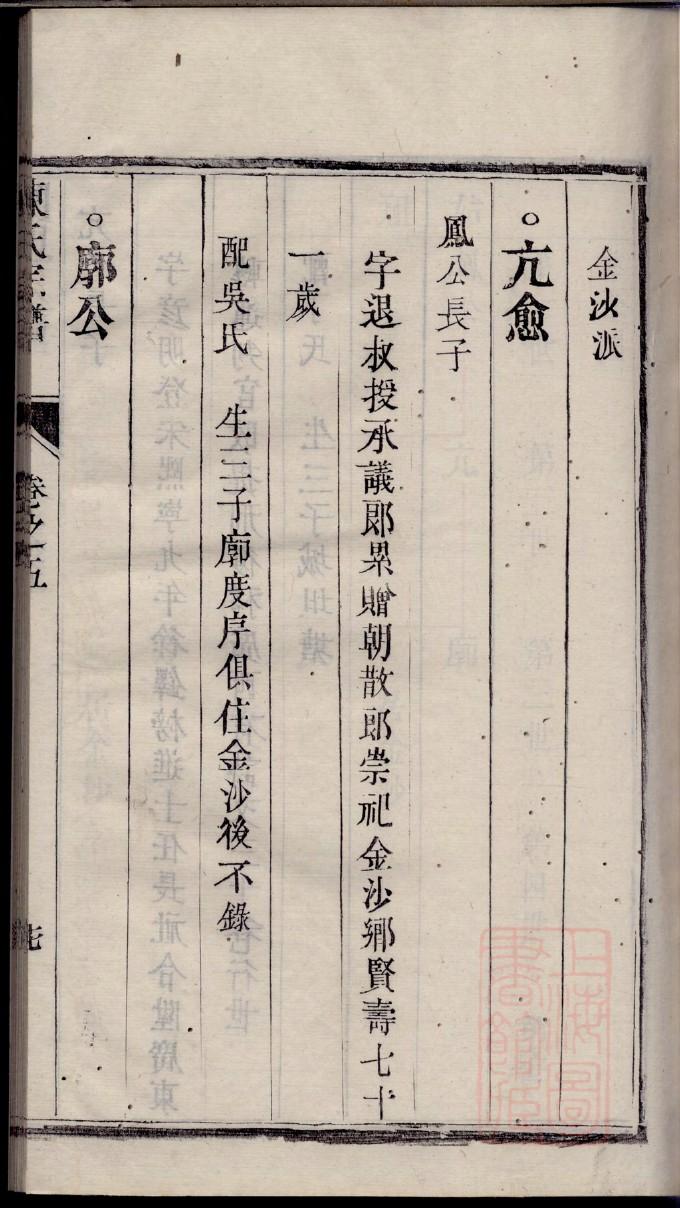 金沙派
○亢愈
鳳公長子
字退叔授承議郎累贈朝散郎崇祀金沙鄉賢壽七十
一歲
配吳氏 生三子廓度庠俱住金沙後不錄
○廓公
陳氏宗譜 卷之五 七
上海圖書館藏